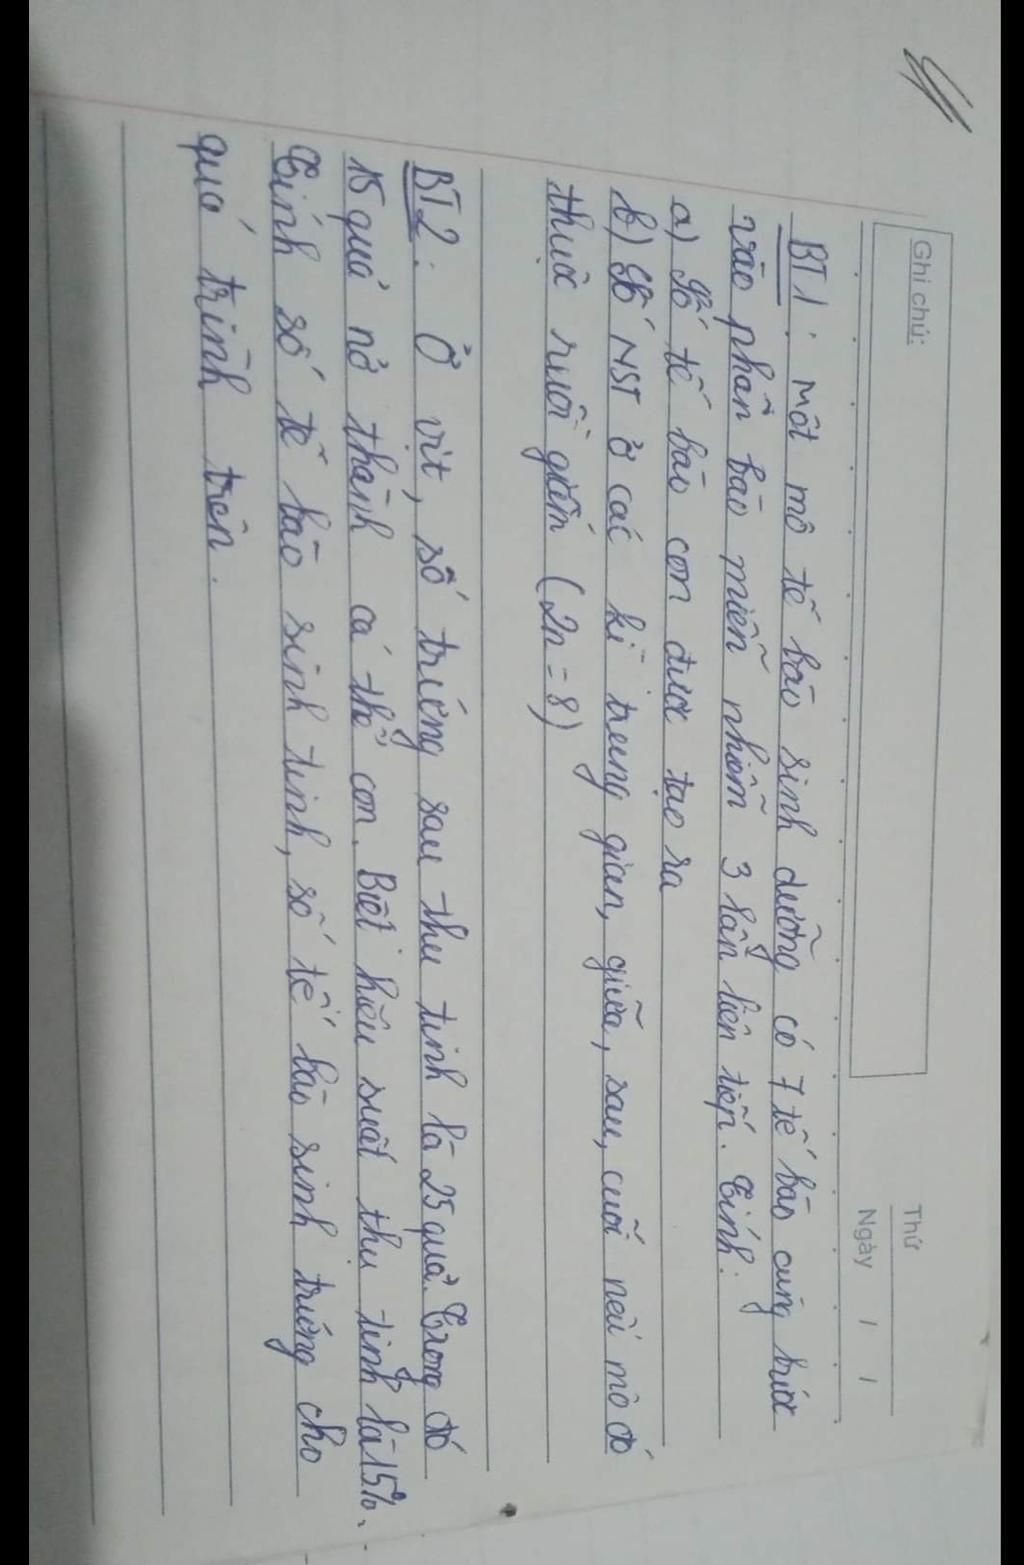 Ghi chú:
Thứ
Ngày / /
BT1: một mô tế bào sinh dưỡng có 7 tế bào cùng bước
vào phân bào miễn nhiễm 3 lần liên tiếp. Tính:
a) Số tế bào con được tạo ra
b) Số NST ở các kì trung gian, giữa, sau, cuối nếu mô đó
thuộc ruồi giấm (2n = 8)
BT2: Ở vịt, số trứng sau thụ tinh là 25 quả. Trong đó
15 quả nở thành cá thể con. Biết hiệu suất thụ tinh là 15%.
Tính số tế bào sinh tinh, số tế bào sinh trứng cho
quá trình trên.